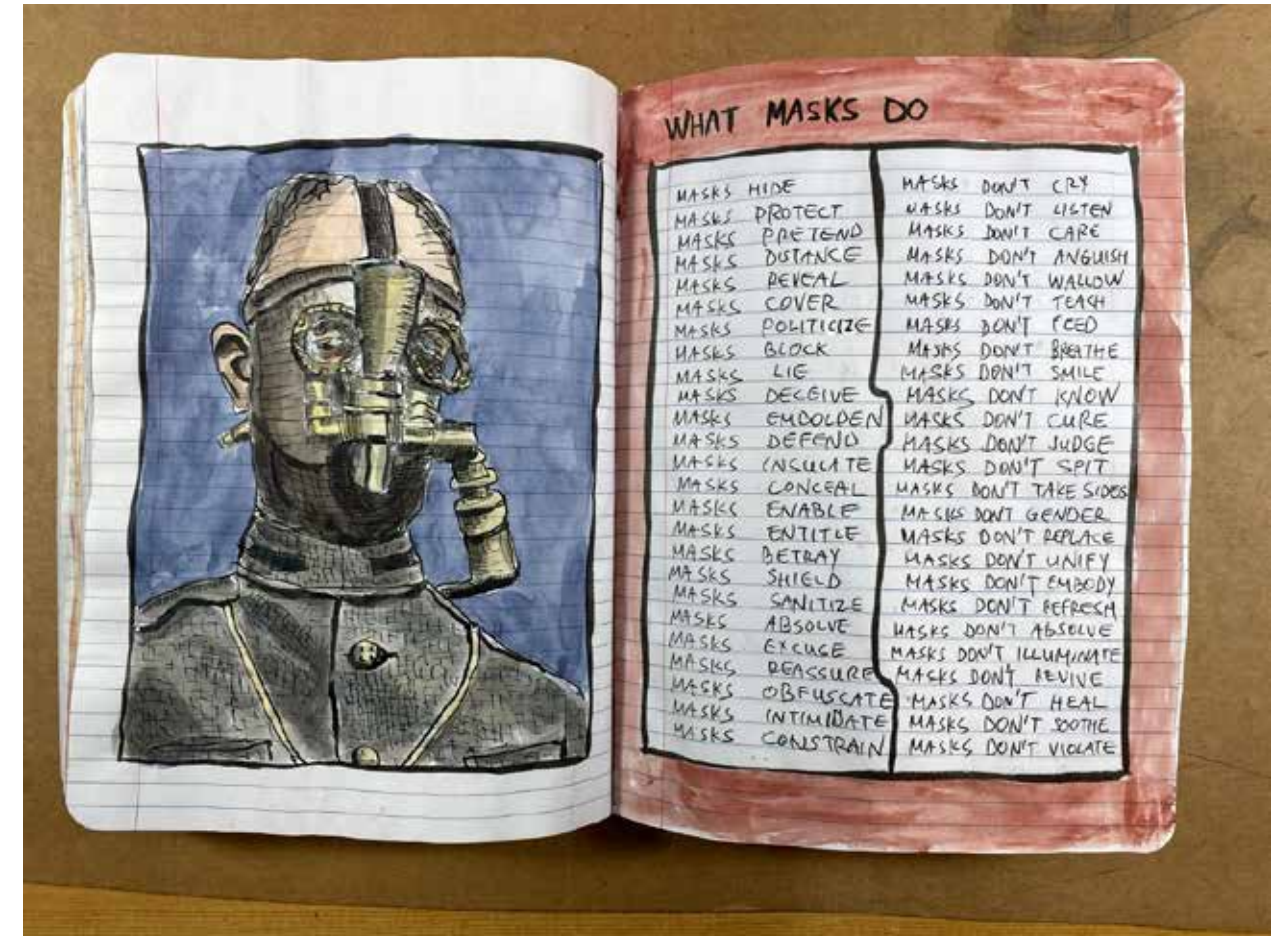 WHAT MASKS DO
MASKS HIDE
MASKS PROTECT
MASKS PRETEND
MASKS DISTANCE
MASKS REVEAL
MASKS COVER
MASKS POLITICIZE
MASKS BLOCK
MASKS LIE
MASKS DECEIVE
MASKS EMBOLDEN
MASKS DEFEND
MASKS INSULATE
MASKS CONCEAL
MASKS ENABLE
MASKS ENTITLE
MASKS BETRAY
MASKS SHIELD
MASKS SANITIZE
MASKS ABSOLVE
MASKS EXCUSE
MASKS REASSURE
MASKS OBFUSCATE
MASKS INTIMIDATE
MASKS CONSTRAIN
MASKS DON'T CRY
MASKS DON'T LISTEN
MASKS DON'T CARE
MASKS DON'T ANGUISH
MASKS DON'T WALLOW
MASKS DON'T TEACH
MASKS DON'T FEED
MASKS DON'T BREATHE
MASKS DON'T SMILE
MASKS DON'T KNOW
MASKS DON'T CURE
MASKS DON'T JUDGE
MASKS DON'T SPIT
MASKS DON'T TAKE SIDES
MASKS DONT GENDER
MASKS DON'T REPLACE
MASKS DON'T UNIFY
MASKS DON'T EMBODY
MASKS DON'T REFRESH
MASKS DON'T ABSOLVE
MASKS DON'T ILLUMINATE
MASKS DON'T REVIVE
MASKS DON'T HEAL
MASKS DON'T SOOTHE
MASKS DON'T VIOLATE